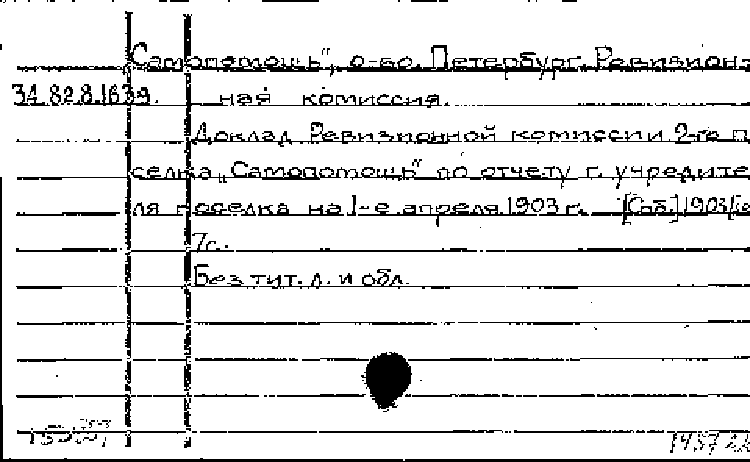 „Самопомощь", о-во. Петербург. Ревизион-
34.82.8.1639. ная комиссия.
Доклад Ревизионной комиссии 2-го п
селка „Самопомощь" по отчету г. учредите
ля поселка на 1-е апреля 1903 г. [Спб.] 1903
7с.
Без тит. л. и обл.